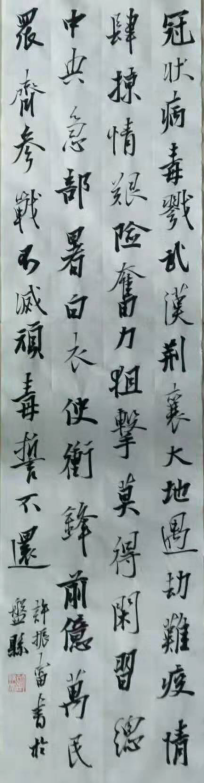 冠状病毒戮武漢荆襄大地遇劫難疫情
肆掠情艱險奮力狙擊莫得閑習總
中央急部署白衣使衝鋒前億萬民
眾齊參戰不滅頑毒誓不還
許振富書於
盤縣